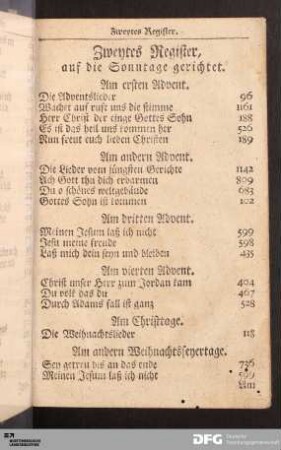 Zweytes Register.
Zweytes Register,
auf die Sonntage gerichtet.
Am ersten Advent.
Die Adventslieder 96
Wachet auf ruft uns die stimme 1161
Herr Christ der einge Gottes Sohn 188
Es ist das heil uns kommen her 526
Nun freut euch lieben Christen 189
Am andern Advent.
Die Lieder vom jüngsten Gerichte 1142
Ach Gott thu dich erbarmen 809
Du o schönes weltgebäude 683
Gottes Sohn ist kommen 102
Am dritten Advent.
Meinen Jesum laß ich nicht 599
Jesu meine freude 598
Laß mich dein seyn und bleiben 435
Am vierten Advent.
Christ unser Herr zum Jordan kam 404
Du volk das du 467
Durch Adams fall ist ganz 528
Am Christtage.
Die Weihnachtslieder 118
Am andern Weihnachtsfeyertage.
Sey getreu bis an das ende 736
Meinen Jesum laß ich nicht 599
Am
DFG